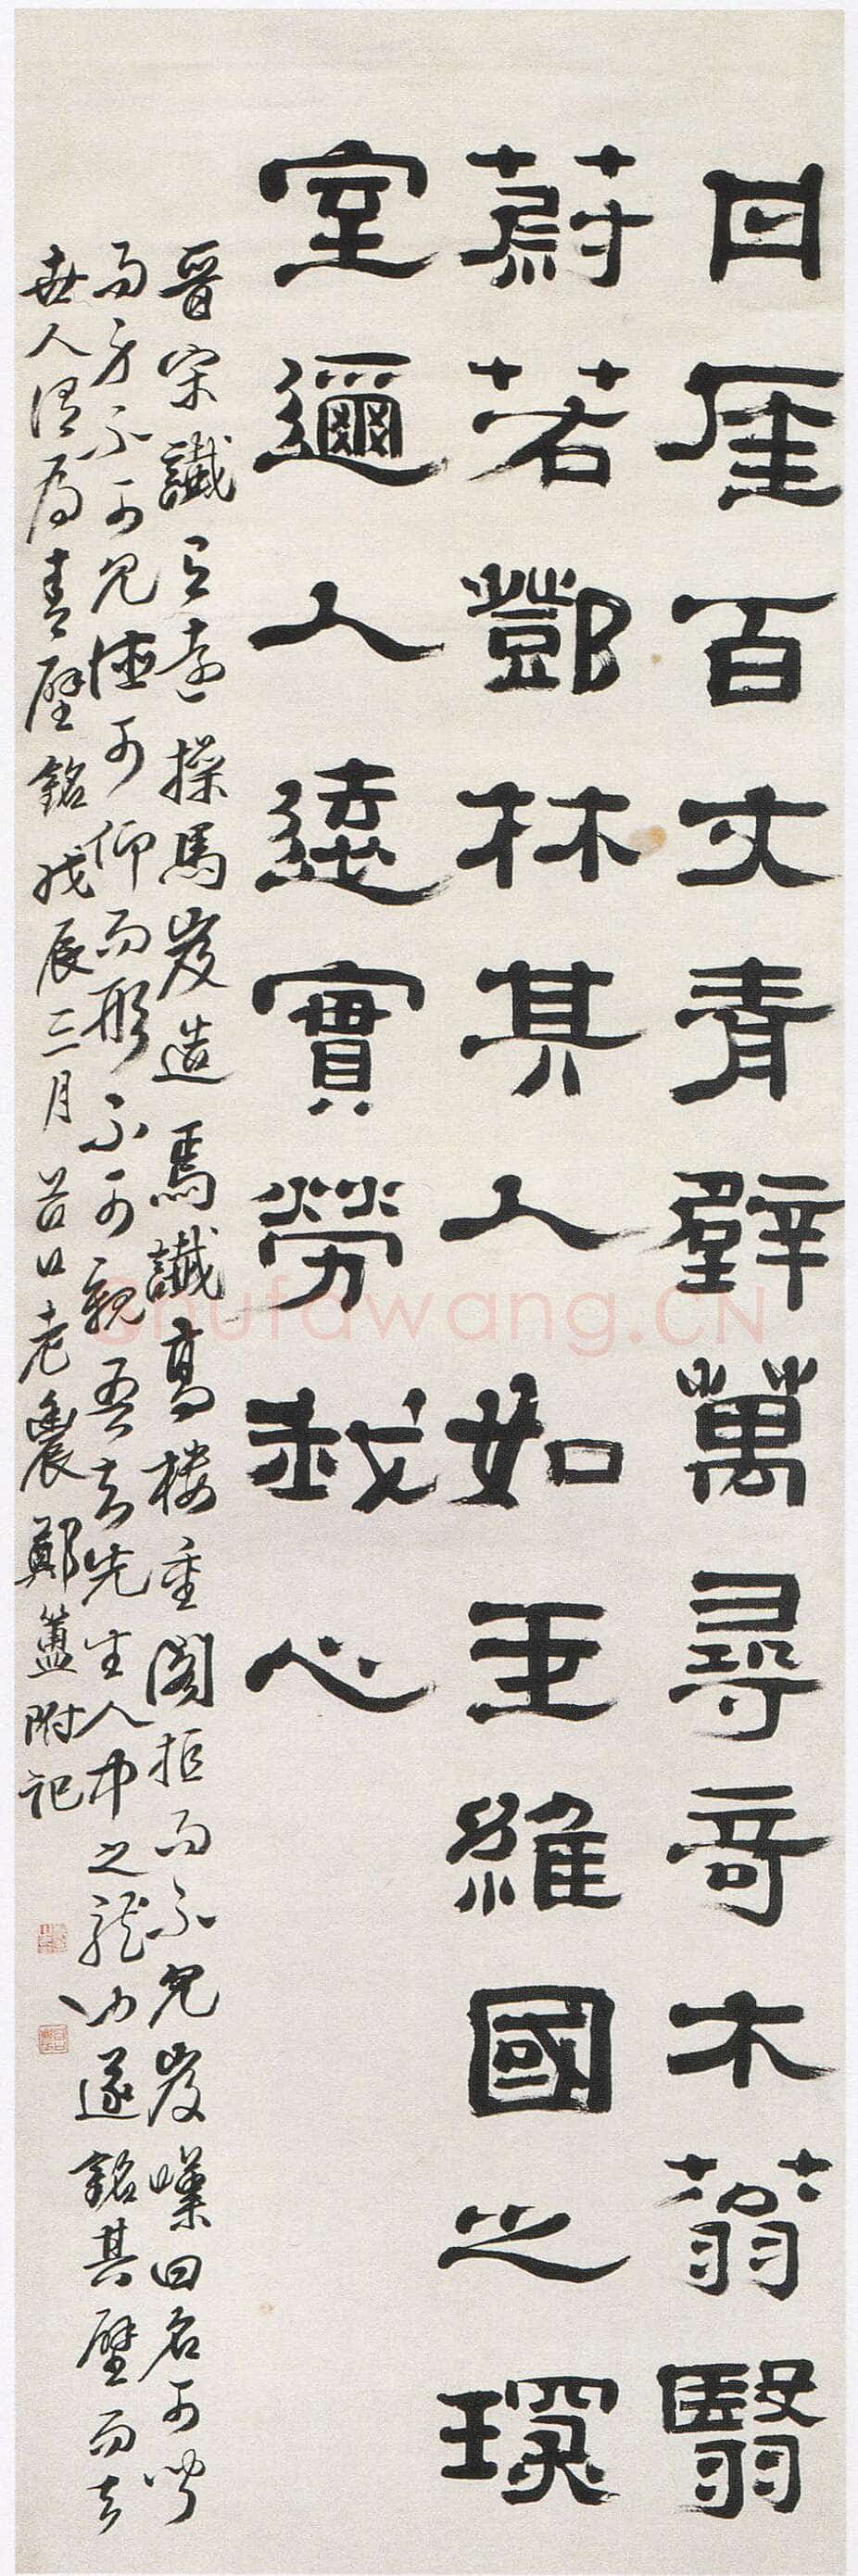 丹厓百丈青壁萬尋奇木蓊翳
蔚若鄧林其人如玉維國之琛
室邇人遠實勞我心
晉宋讖有遠操馬岌造焉讖高樓重閣拒而不見岌嘆曰名可聞
而身不可見德可仰而形不可親吾知先生人中之龍也遂銘其壁而去
世人謂為青壁銘戊辰三月谷口老農鄭簠附記
Shufawang.CN